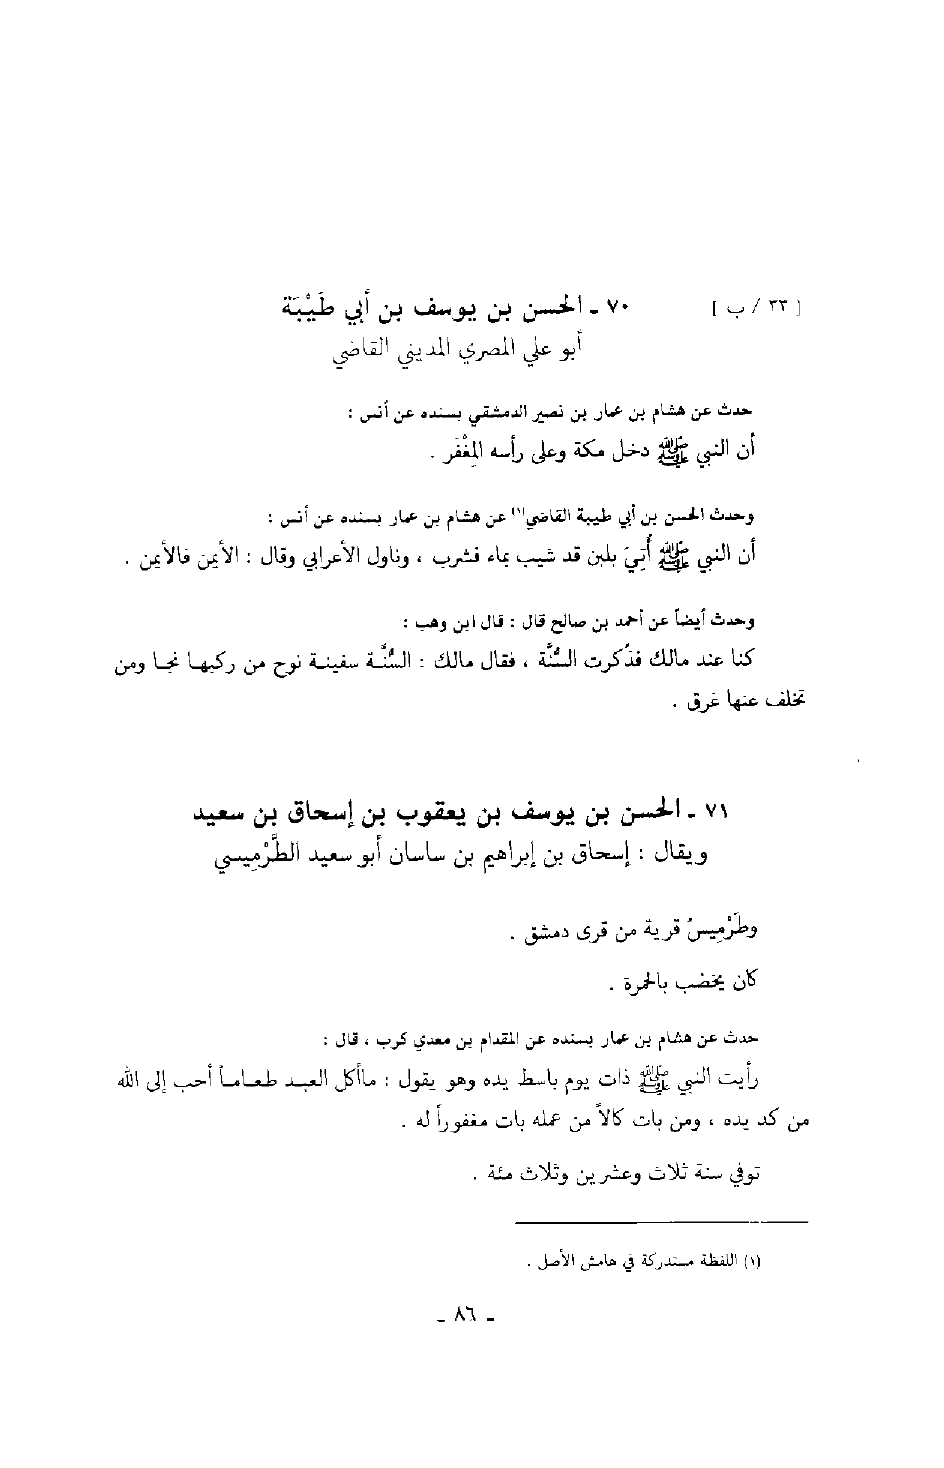 [ ٣٣ / ب ] ٧٠ ـ الحسن بن يوسف بن أبي طَيْبَة
أبو علي المصري المديني القاضي
حدث عن هشام بن عمار بن نصير الدمشقي بسنده عن أنس :
أن النبي ﷺ دخل مكة وعلى رأسه المِغْفَر .
وحدث الحسن بن أبي طيبة القاضي(١) عن هشام بن عمار بسنده عن أنس :
أن النبي ﷺ أُتِيَ بلبن قد شيب بماء فشرب ، وناول الأعرابي وقال : الأيمن فالأيمن .
وحدث أيضاً عن أحمد بن صالح قال : قال ابن وهب :
كنا عند مالك فذُكرت السُّنَّة ، فقال مالك : السُّنَّة سفينة نوح من ركبها نجا ومن
تخلف عنها غرق .
٧١ ـ الحسن بن يوسف بن يعقوب بن إسحاق بن سعيد
ويقال : إسحاق بن إبراهيم بن ساسان أبو سعيد الطَّرْمِيسي
وطَرْمِيسُ قرية من قرى دمشق .
كان يخضب بالحمرة .
حدث عن هشام بن عمار بسنده عن المقدام بن معدي كرب ، قال :
رأيت النبي ﷺ ذات يوم باسط يده وهو يقول : ماأكل العبد طعاماً أحب إلى الله
من كد يده ، ومن بات كالاً من عمله بات مغفوراً له .
توفي سنة ثلاث وعشرين وثلاث مئة .
(١) اللفظة مستدركة في هامش الأصل .
ـ ٨٦ ـ